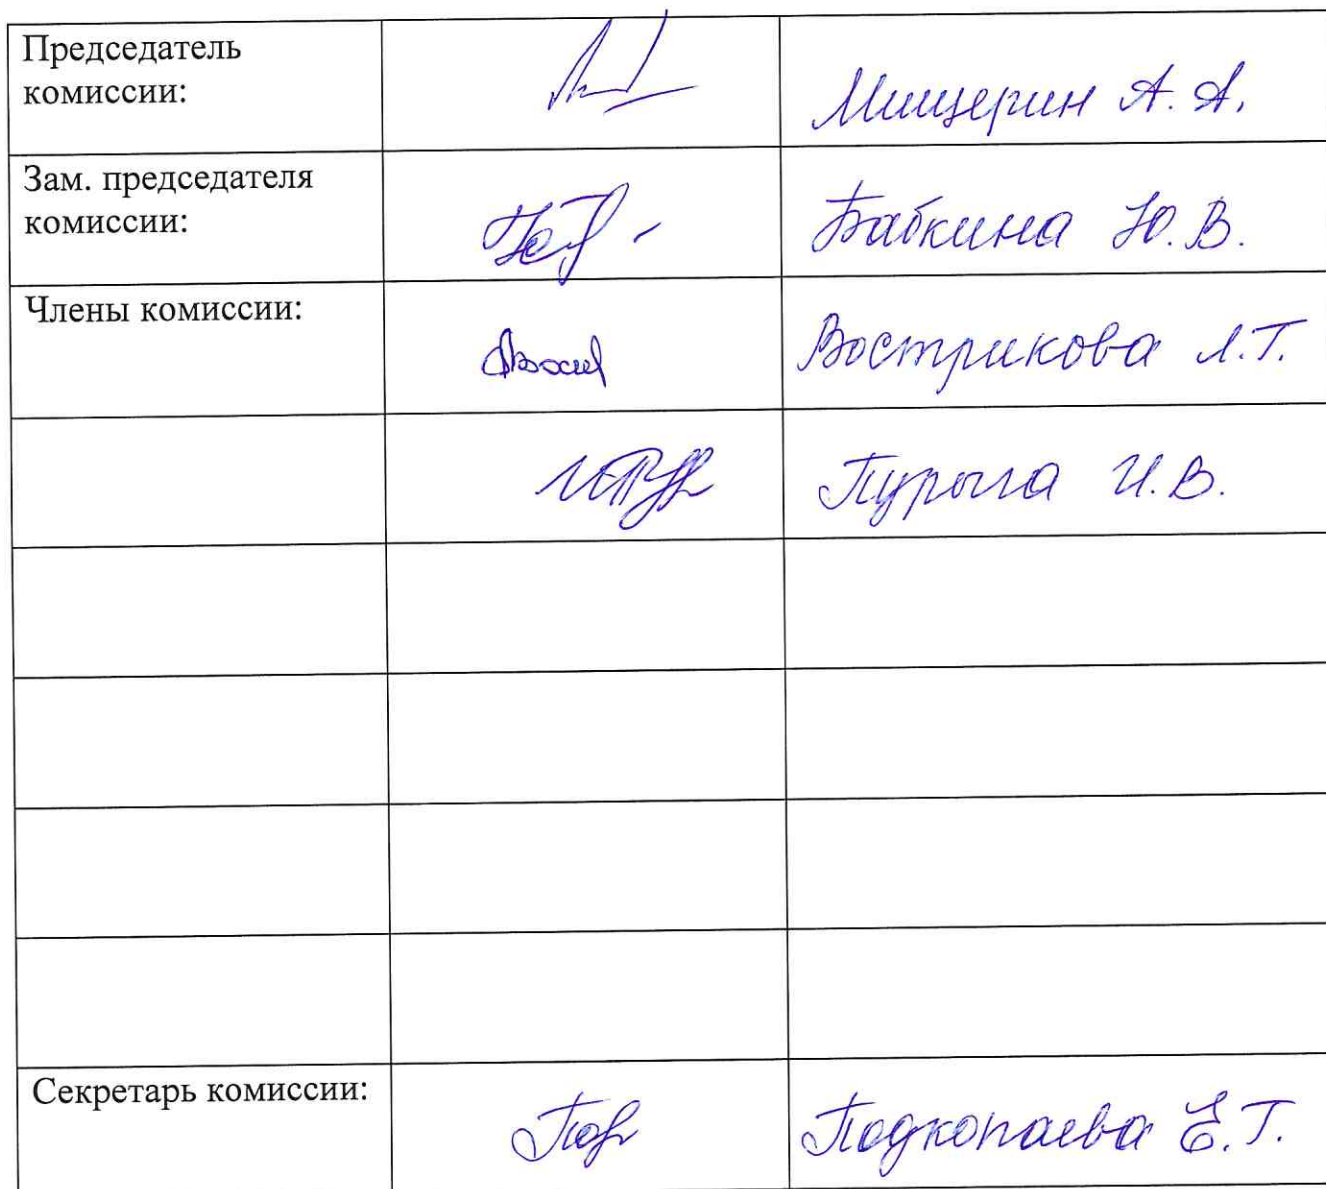 Председатель
комиссии:
Мищерин А. А.
Зам. председателя
комиссии:
Бабкина Ю. В.
Члены комиссии:
Вострикова Л.Т.
Пурыга И.В.
Секретарь комиссии:
Подкопаева Е.Т.